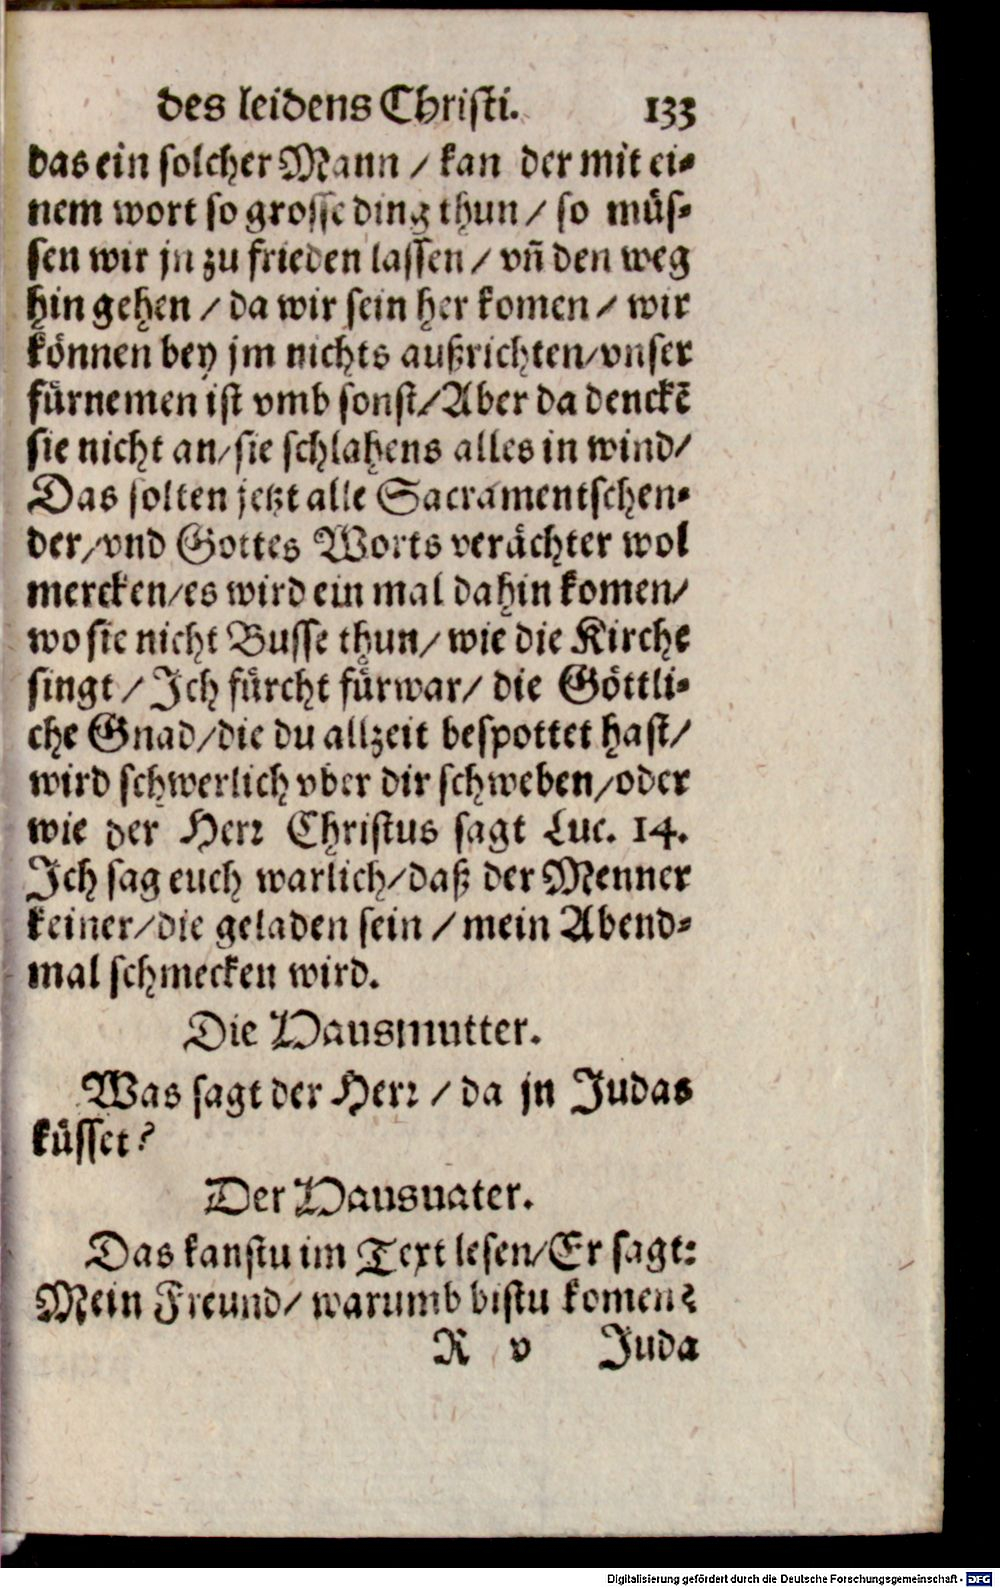 des leidens Christi. 133
das ein solcher Mann / kan der mit ei⸗
nem wort so grosse ding thun / so müs⸗
sen wir jn zu frieden lassen / vñ den weg
hin gehen / da wir sein her komen / wir
können bey jm nichts außrichten/vnser
fürnemen ist vmb sonst/Aber da denckẽ
sie nicht an/sie schlahens alles in wind/
Das solten jetzt alle Sacramentschen⸗
der/vnd Gottes Worts verächter wol
mercken/es wird ein mal dahin komen/
wo sie nicht Busse thun/ wie die Kirche
singt / Ich fürcht fürwar/ die Göttli⸗
che Gnad/die du allzeit bespottet hast/
wird schwerlich vber dir schweben/oder
wie der Herr Christus sagt Luc. 14.
Ich sag euch warlich/daß der Menner
keiner/die geladen sein / mein Abend⸗
mal schmecken wird.
Die Hausmutter.
Was sagt der Herr / da jn Judas
küsset?
Der Hausuater.
Das kanstu im Text lesen/Er sagt:
Mein Freund/ warumb bistu komen?
R v Juda
Digitalisierung gefördert durch die Deutsche Forschungsgemeinschaft - DFG